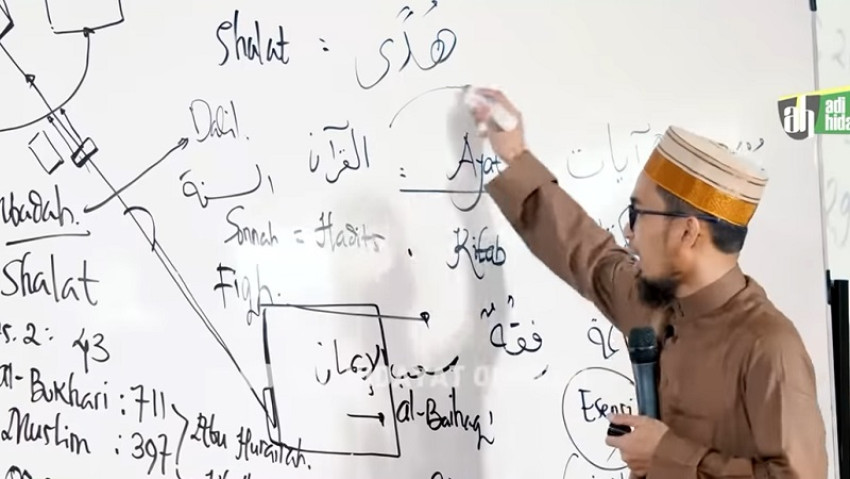 Shalat : هُدًى
adi
ah hida
Dalil.
القرآن : Ayat آيات
السنة
Sunnah = Hadits . Kitab
Ibadah.
Shalat
Fiqh.
فقه
s. 2 : 43
شعب الإيمان
al-Bukhari : 711
al-Baihaqi
Esensi
Muslim : 397
Abu Hurairah.